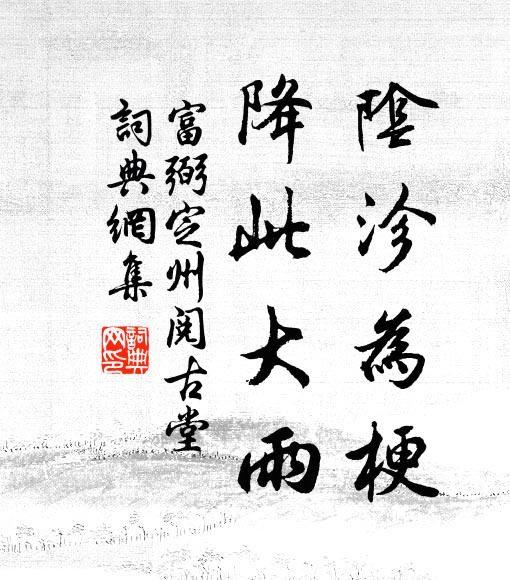 陰沴為梗
降此大雨
富弼定州閱古堂
詞典網集
詞典
网印